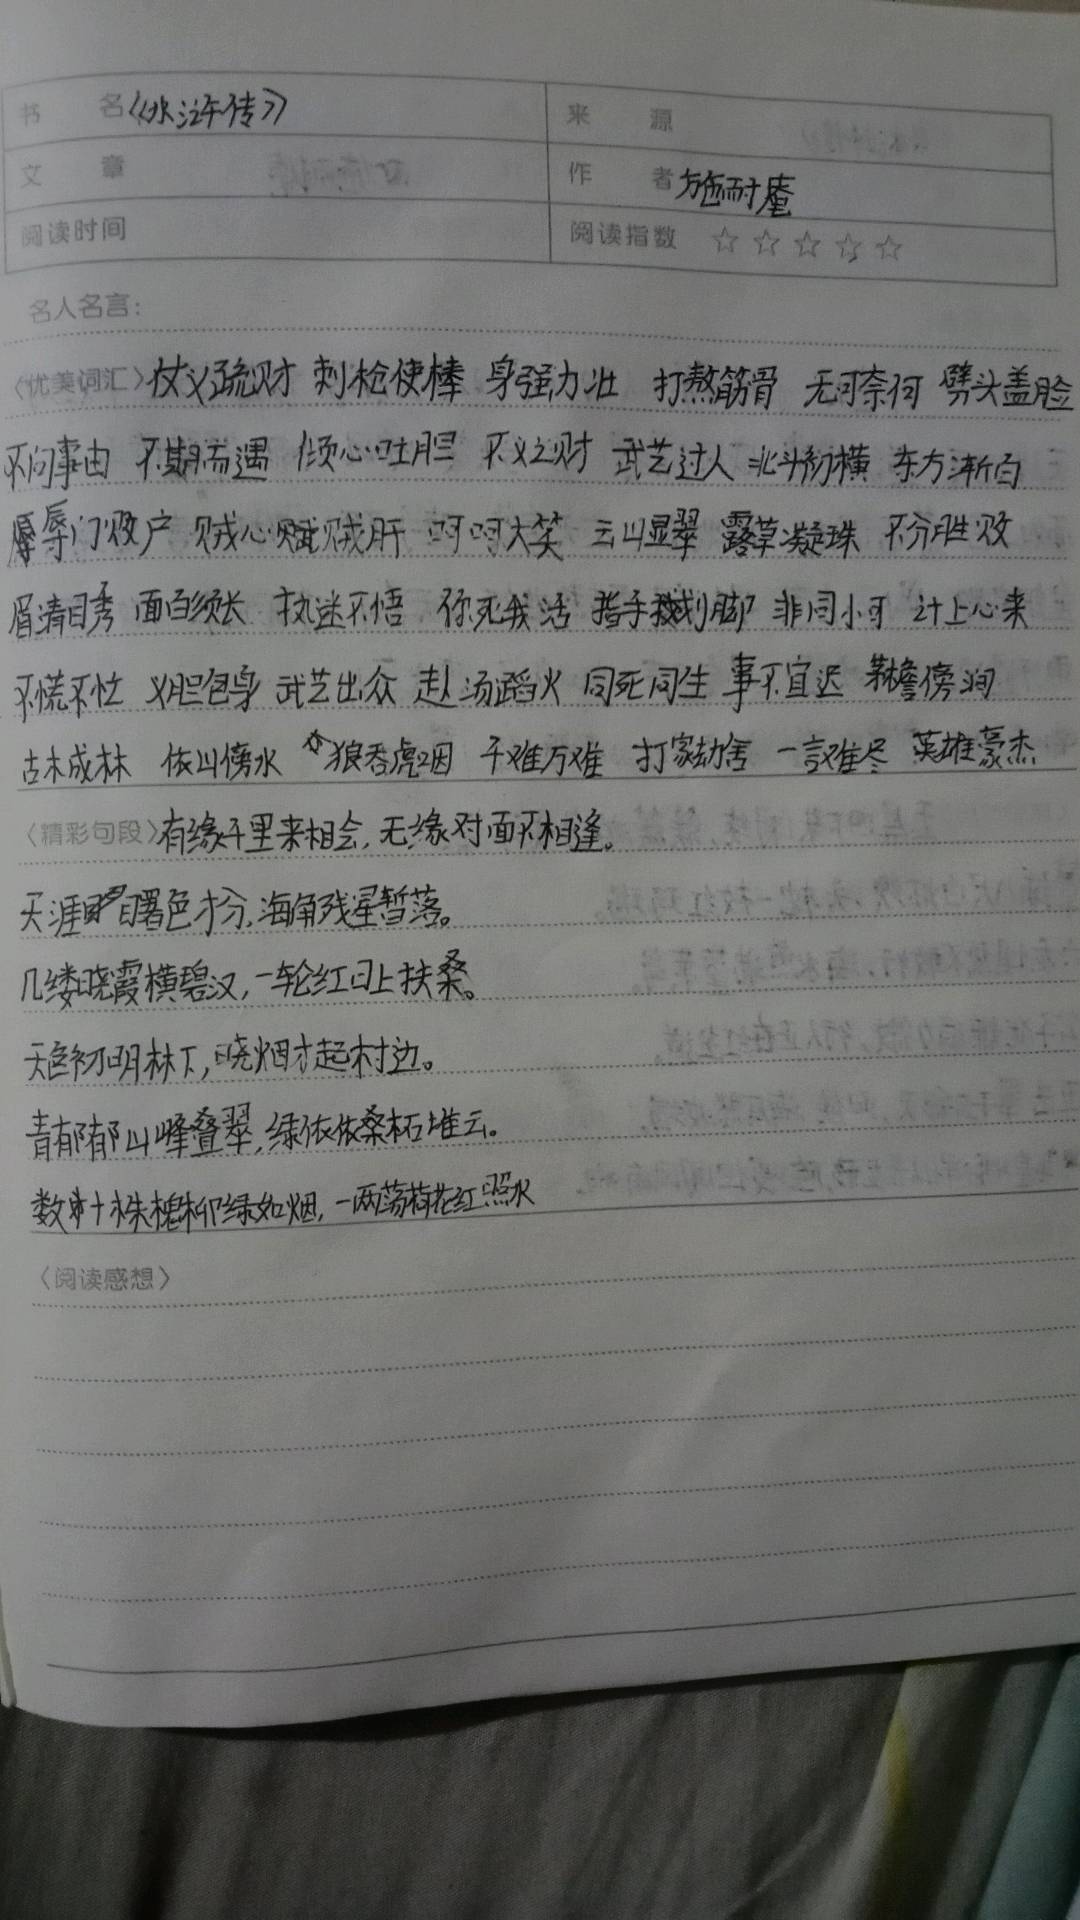 书 名《水浒传》 来 源
文 章 作 者 施耐庵
阅读时间 阅读指数 ☆☆☆☆☆
名人名言:
〈优美词汇〉仗义疏财 刺枪使棒 身强力壮 打熬筋骨 无可奈何 劈头盖脸
不问事由 不期而遇 倾心吐胆 不义之财 武艺过人 北斗初横 东方渐白
辱门败户 贼心贼肝 呵呵大笑 云山显翠 露草凝珠 不分胜败
眉清目秀 面白须长 执迷不悟 你死我活 指手划脚 非同小可 计上心来
不慌不忙 义胆包身 武艺出众 赴汤蹈火 同死同生 事不宜迟 茅檐傍涧
古木成林 依山傍水 狼吞虎咽 千难万难 打家劫舍 一言难尽 英雄豪杰
〈精彩句段〉有缘千里来相会,无缘对面不相逢。
天涯曙色才分,海角残星暂落。
几缕晓霞横碧汉,一轮红日上扶桑。
天色初明林下,晓烟才起村边。
青郁郁山峰叠翠,绿依依桑柘堆云。
数十株槐柳绿如烟,一两荡荷花红照水
〈阅读感想〉